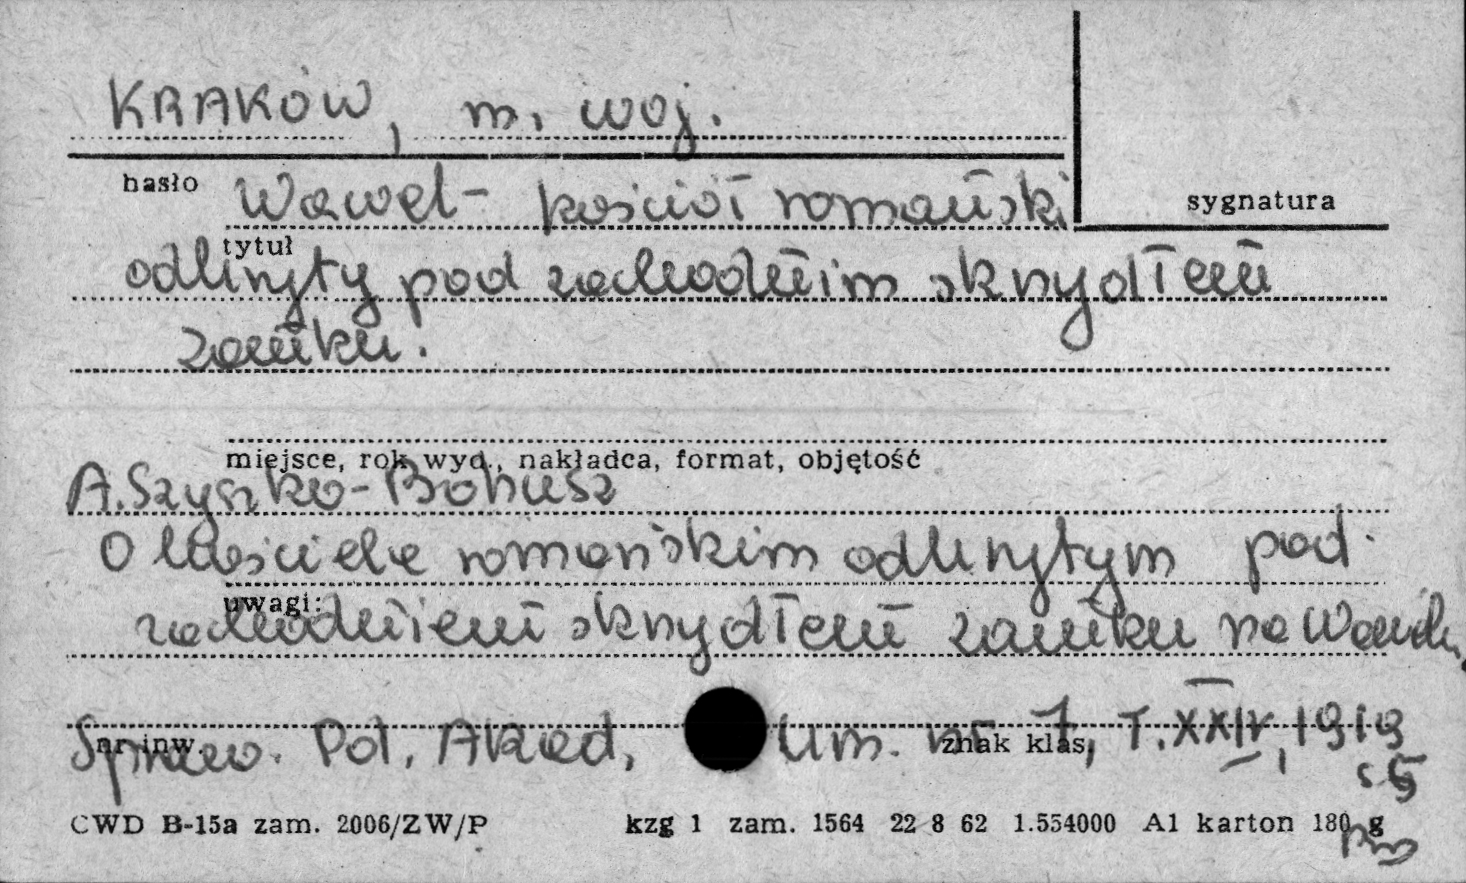 KRAKÓW, m. woj.
hasło
Wawel- kościół romański
sygnatura
tytuł
odkryty pod zachodnim skrzydłem
zamku.
miejsce, rok wyd., nakładca, format, objętość
A. Szyszko-Bohusz
O kościele romańskim odkrytym pod
uwagi:
zachodniem skrzydłem zamku na Wawelu.
Spraw. Pol. Akad. Um. nr 7, T. XXIV, 1919
nr inw.
znak klas.
s 5
CWD B-15a zam. 2006/ZW/P kzg 1 zam. 1564 22 8 62 1.554000 A1 karton 180 g